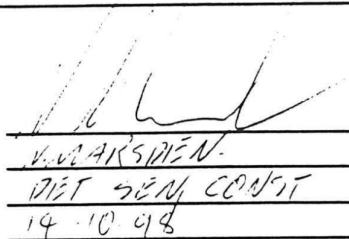 V. MARSDEN.
DET SEN CONST
14-10-98